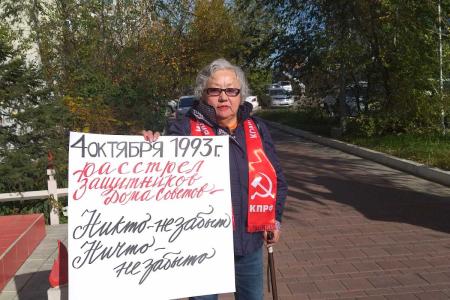 4 ОКТЯБРЯ 1993 г.
расстрел
защитников
Дома Советов
Никто - не забыт
Ничто -
не забыто
КПРФ